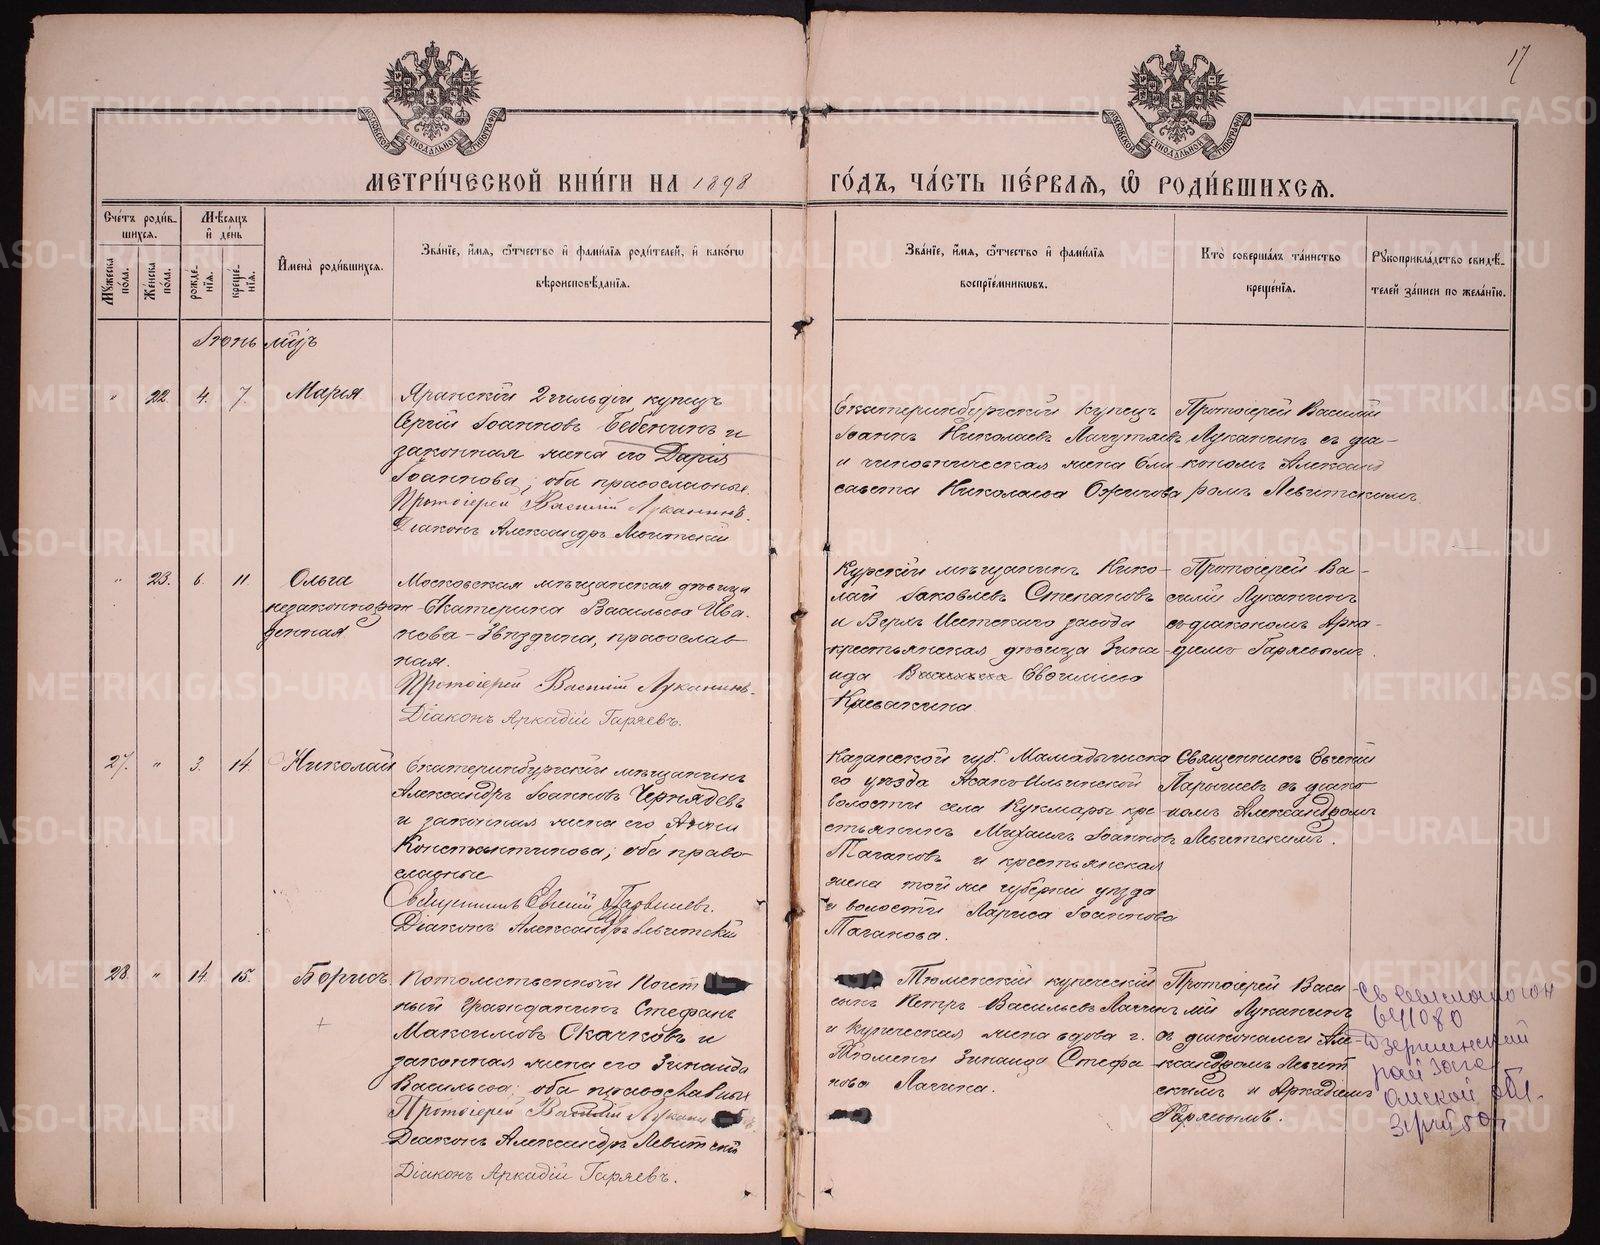 17
МОСКОВСКОЙ СУНОДАЛЬНОЙ ТИПОГРАФІИ
МОСКОВСКОЙ СУНОДАЛЬНОЙ ТИПОГРАФІИ
МЕТРИ́ЧЕСКОЙ КНИ́ГИ НА 1898
ГО́ДЪ, ЧА́СТЬ ПЕ́РВАЯ, Ѡ҆ РОДИ́ВШИХСЯ.
Сче́тъ роди́в-
шихся.
Мꙋ́жеска
по́ла.
Же́нска
по́ла.
Мѣ́сяцъ
и҆ де́нь
рожде-
нїя.
креще-
нїя.
И҆мена̀ роди́вшихся.
Зва́нїе, и҆́мя, ѻ҆́тчество и҆ фами́лїя роди́телей, и҆ како́гѡ
вѣроисповѣ́данїя.
Зва́нїе, и҆́мя, ѻ҆́тчество и҆ фами́лїя
воспрїе́мникѡвъ.
Кто̀ соверша́лъ та́инство
креще́нїя.
Рꙋкоприкла́дство свидѣ́-
телей за́писи по жела́нїю.
Іюнь мѣ́ц
" 22 4. 7. Марія
Яранскій 2 гильдіи купецъ
Сергій Іоанновъ Бебенинъ и
законная жена его Дарія
Іоаннова; оба православные.
Протоіерей Василій Луканинъ.
Діаконъ Александръ Левитскій
Екатеринбургскій купецъ
Іоаннъ Николаевъ
и чиновническая жена Ели
савета Николаева Ожигова
Протоіерей Василій
Луканинъ съ діа-
кономъ Александ
ромъ Левитскимъ
" 23. 6. 11. Ольга
незаконнорож
денная
Московская мѣщанская дѣвица
Екатерина Васильева Ива-
нова-Звѣздина, православ
ная.
Протоіерей Василій Луканинъ.
Діаконъ Аркадій Гаряевъ.
Курскій мѣщанинъ Нико-
лай Іаковлевъ Степановъ
и Верхъ Исетскаго завода
крестьянская дѣвица Зина-
ида Васильева Евфиміева
Протоіерей Ва-
силій Луканинъ
съ діакономъ Арка-
діемъ Гаряевымъ.
27. " 3. 14. Николай
Екатеринбургскій мѣщанинъ
Александръ Іоанновъ Чернядевъ
и законная жена его Анна
Константинова; оба право-
славные
Священникъ Евгеній
Діаконъ Александръ Левитскій
Казанской губ. Мамадышска
го уѣзда Ильинской
волости села Кукмары кре
стьянинъ Михаилъ Іоанновъ
Таганов и крестьянская
жена той же губерніи уѣзда
и волости Лариса Іоаннова
Таганова.
Священникъ Евгеній
съ діако
номъ Александромъ
Левитскимъ.
28 " 14. 15. Борисъ
Потомственный Почет
ный Гражданинъ Стефанъ
Максимовъ Скачковъ и
законная жена его Зинаида
Васильева; оба православные
Протоіерей Василій Лукани
Діаконъ Александръ Левитскій
Діаконъ Аркадій Гаряевъ.
Тюменскій купеческій
сынъ Петръ Васильевъ
и купеческая жена вдова г.
Тюмени Зинаида Стефа
нова Лагина.
Протоіерей Васи
лій Луканинъ
съ діаконами Але-
ксандромъ Левит
скимъ и Аркадіемъ
Гаряевымъ.
641080
Дзержинский
рай загс
Омской обл.